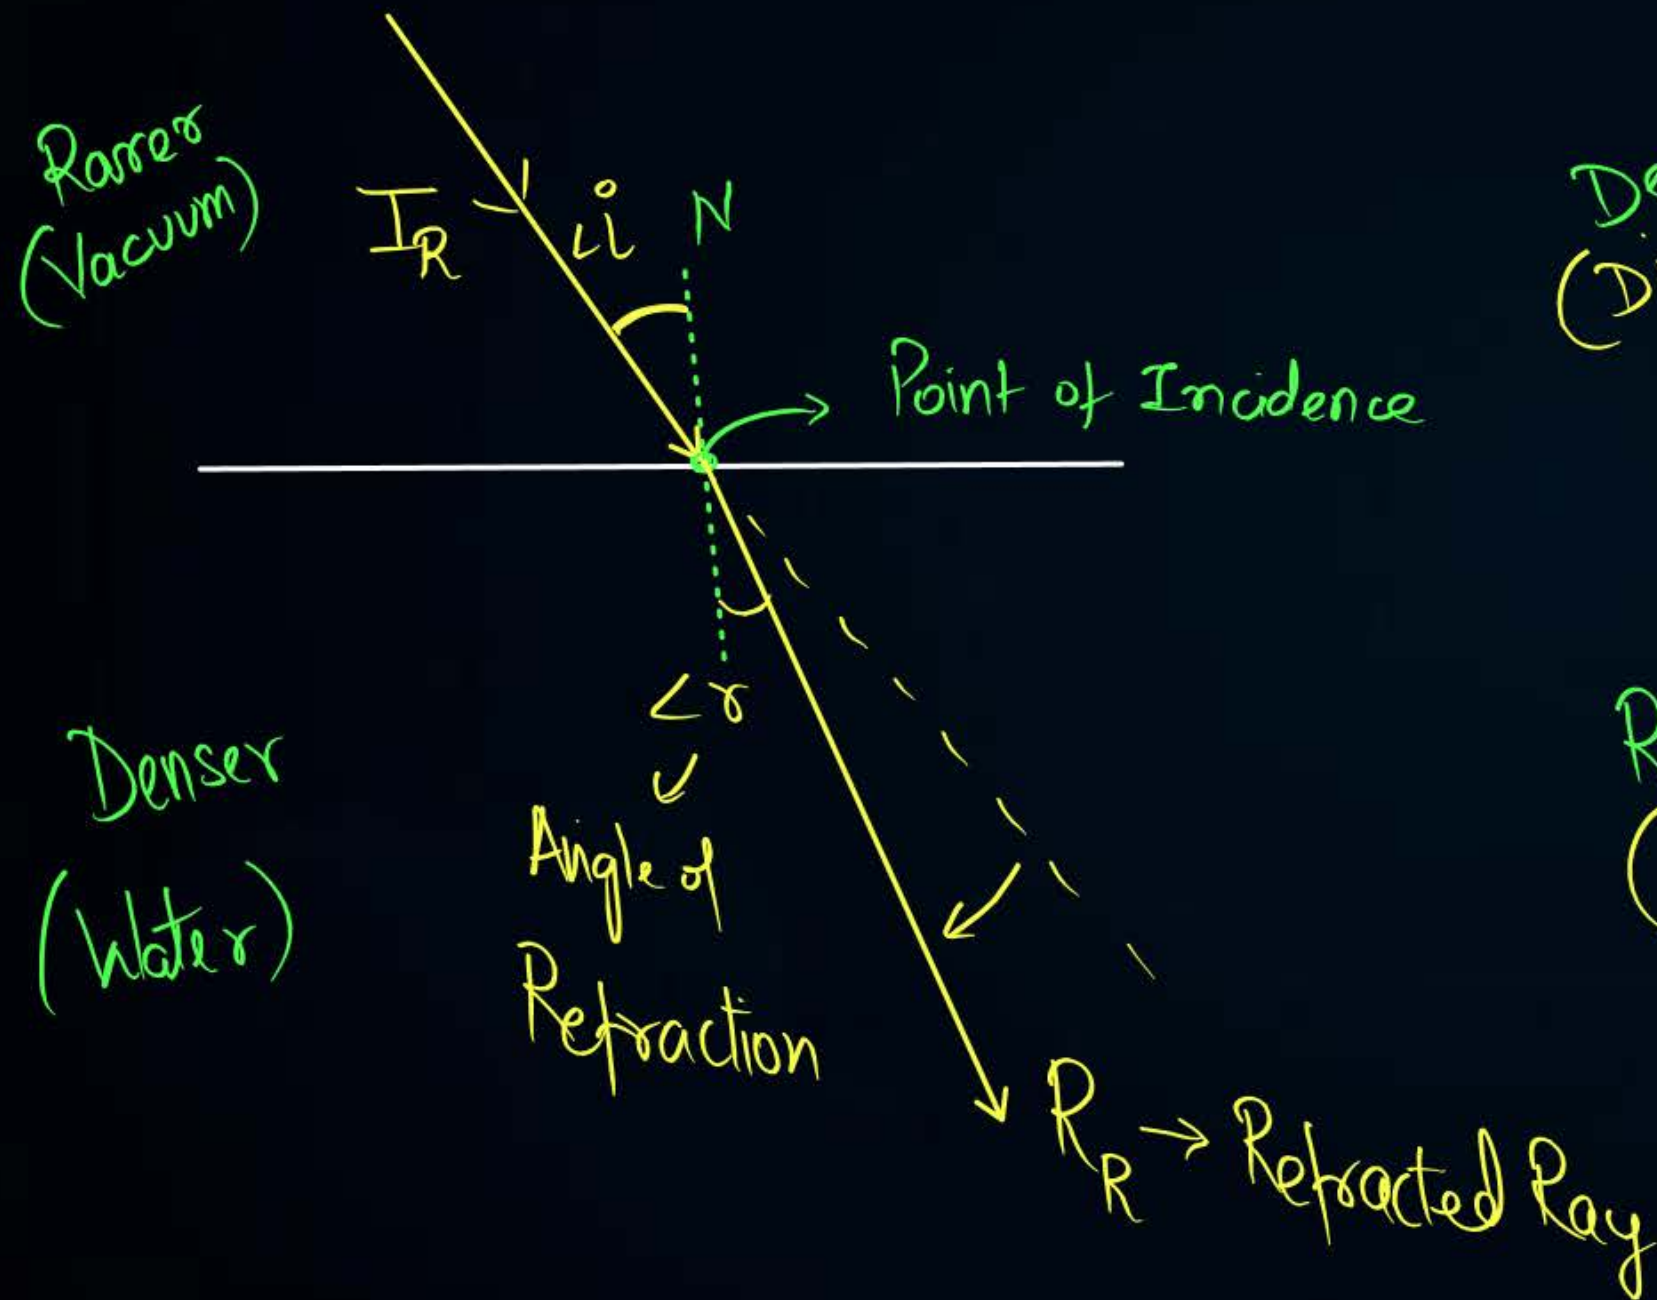 Rarer
(Vacuum)
I_R
∠i
N
Point of Incidence
De
(D
Denser
(Water)
∠r
Angle of
Refraction
R
(
R_R → Refracted Ray